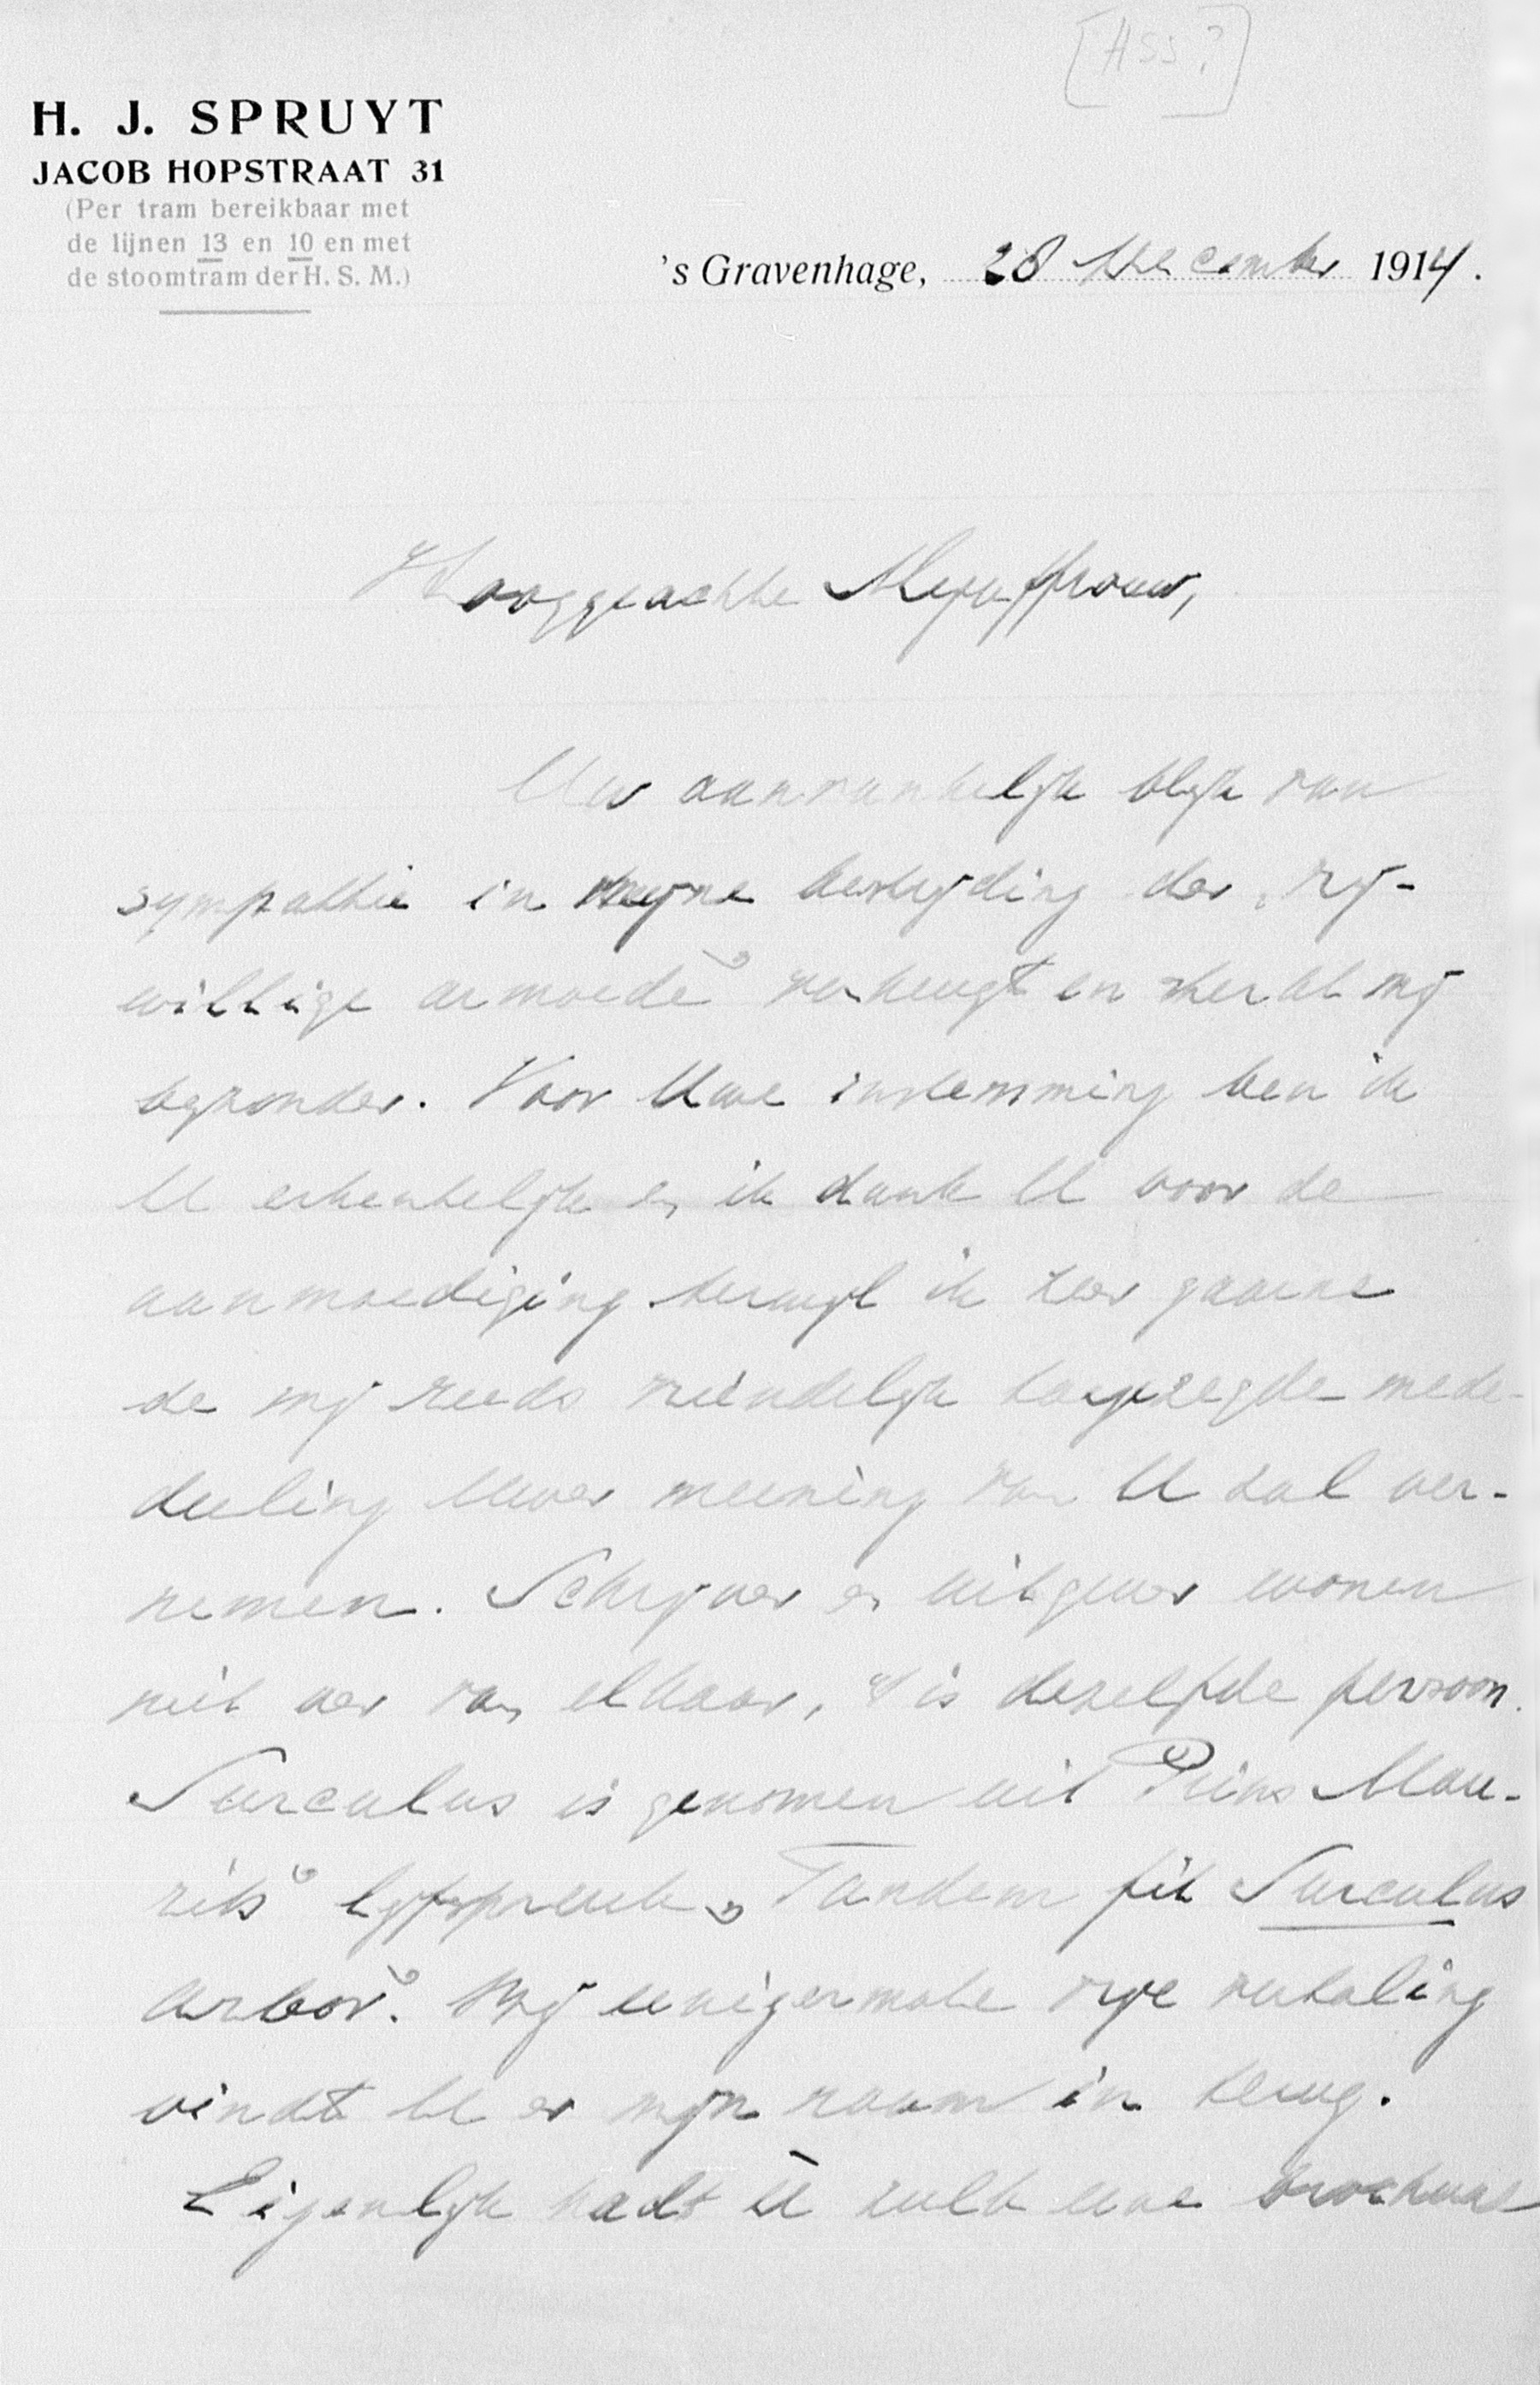 [Hss?]
H. J. SPRUYT
JACOB HOPSTRAAT 31
(Per tram bereikbaar met
de lijnen 13 en 10 en met
de stoomtram der H. S. M.)
's Gravenhage, 28 December 1914.
Hooggeachte Mejuffrouw,
Uw aanvankelijk blijk van
sympathie in mijne bestrijding der „vrij-
willige armoede” verheugt en sterkt mij
bijzonder. Voor Uwe instemming ben ik
U erkentelijk en ik dank U voor de
aanmoediging terwijl ik zeer gaarne
de mij reeds vriendelijk toegezegde mede-
deeling Uwer meening van U zal ver-
nemen. Schrijver en uitgever wonen
niet ver van elkaar, 't is dezelfde persoon.
Surculus is genomen uit Prins Mau-
rits' lijfspreuk „Tandem fit Surculus
arbor”. Bij eenigermate vrije vertaling
vindt U er mijn naam in terug.
Eigenlijk hadt U zulk eene brochure